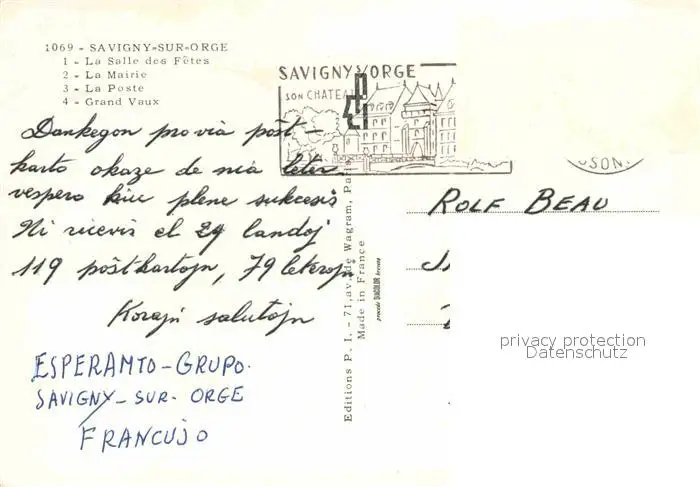 1069 - SAVIGNY-SUR-ORGE
1 - La Salle des Fêtes
2 - La Mairie
3 - La Poste
4 - Grand Vaux
SAVIGNY S/ ORGE
SON CHATEAU
SON.
Dankegon pro via poŝt-
karto okaze de nia leter
vespero kiu plene sukcesis
Ni ricevis el 29 landoj
119 poŝtkartojn, 79 leterojn
Korajn salutojn
ESPERANTO-GRUPO.
SAVIGNY-SUR-ORGE
FRANCUJO
Editions P. I. - 71, av. de Wagram, Pa
Made in France
procédé DIACOLOR breveté
ROLF BEAU
privacy protection
Datenschutz